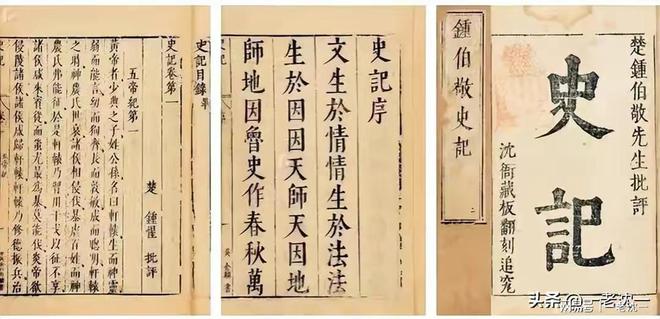 楚鍾伯敬先生批評
史記
沈衙藏板翻刻追究
鍾伯敬史記
二
史記序
文生於情情生於法法
生於因因天師天因地
師地因魯史作春秋萬
史記目錄畢
史記卷第一
楚 鍾惺 批評
五帝紀第一
黃帝者少典之子姓公孫名曰軒轅生而神靈
弱而能言幼而徇齊長而敦敏成而聰明軒轅
之時神農氏世衰諸侯相侵伐暴虐百姓而神
農氏弗能征於是軒轅乃習用干戈以征不享
諸侯咸來賓從而蚩尤最為暴莫能伐炎帝欲
侵陵諸侯諸侯咸歸軒轅軒轅乃修德振兵治
头条 @一老沈一